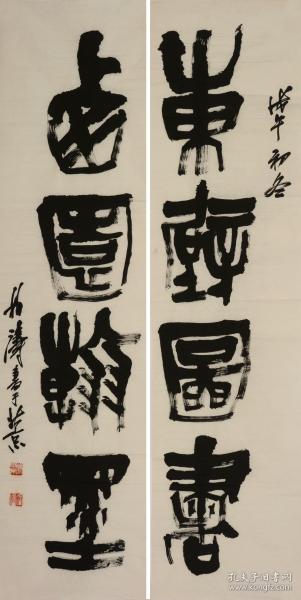 戊午初冬
東壁圖書
西園翰墨
濤書于北京
孔夫子旧书网